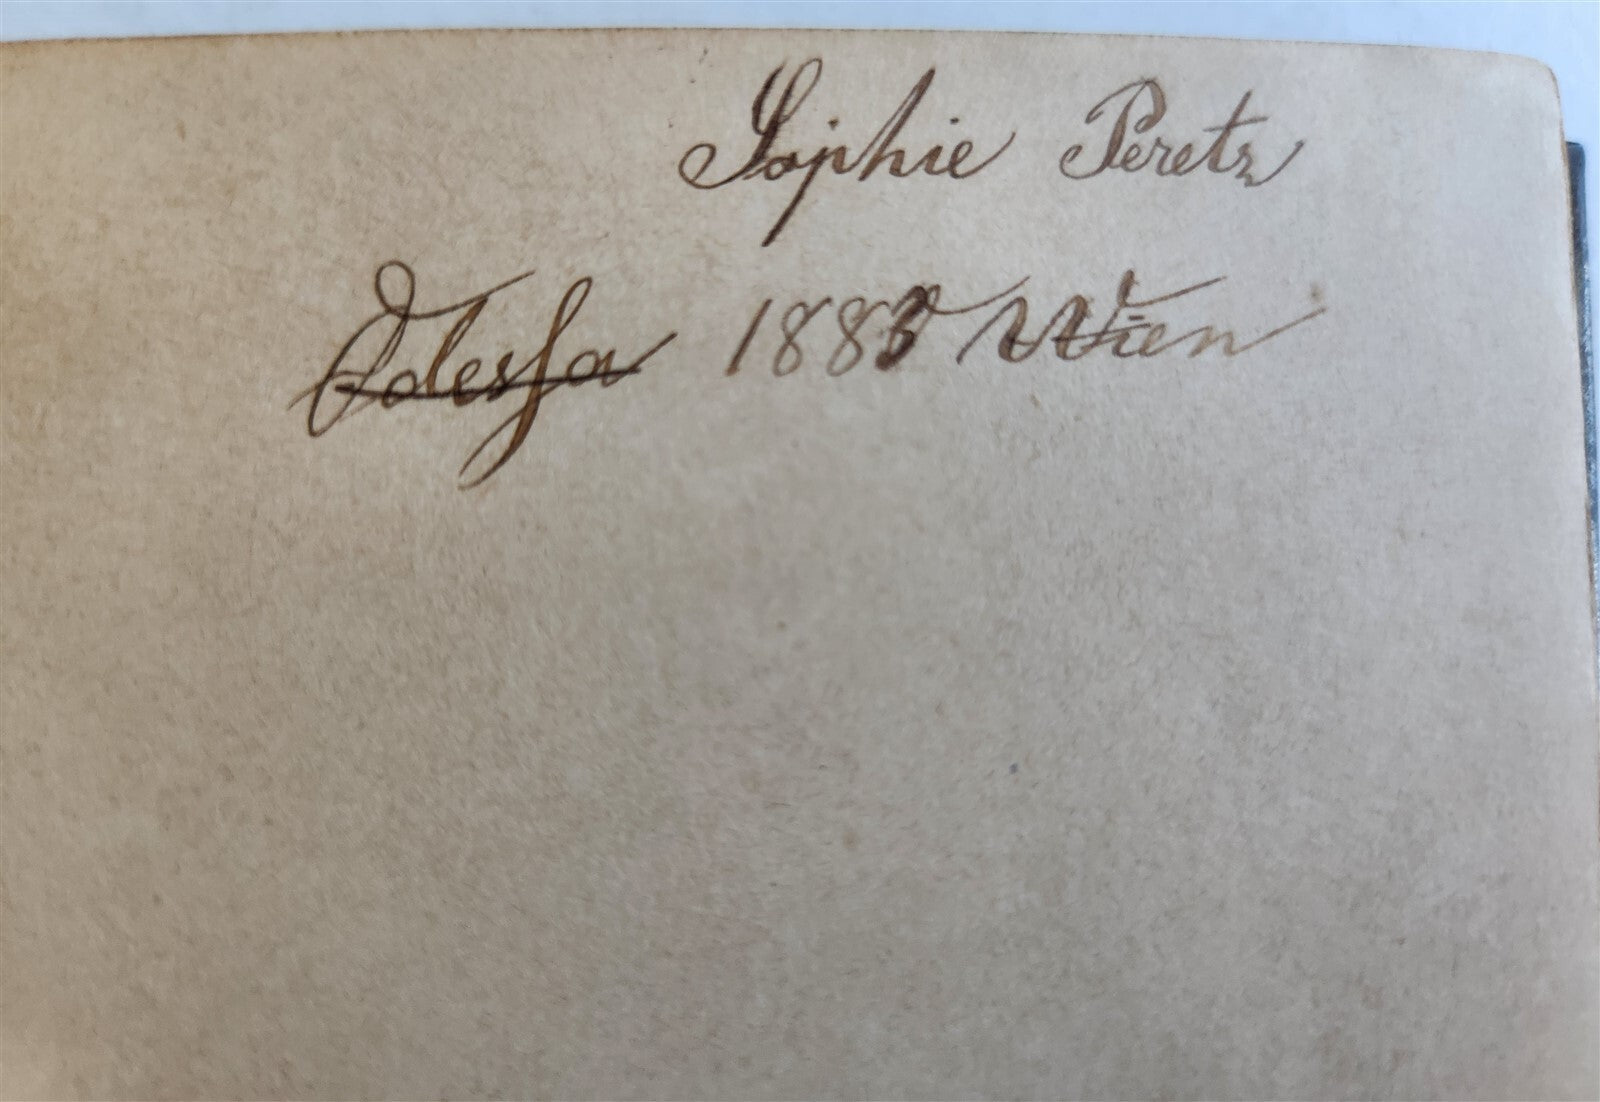 Sophie Peretz
Odessa 1883 Wien